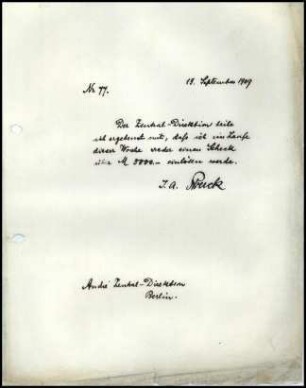 13. September 1909
Nr 77.
Der Zentral-Direktion teile
ich ergebenst mit, daß ich im Laufe
dieser Woche wieder einen Scheck
über M 8000.- einlösen werde.
I. A.
An die Zentral-Direktion
Berlin.